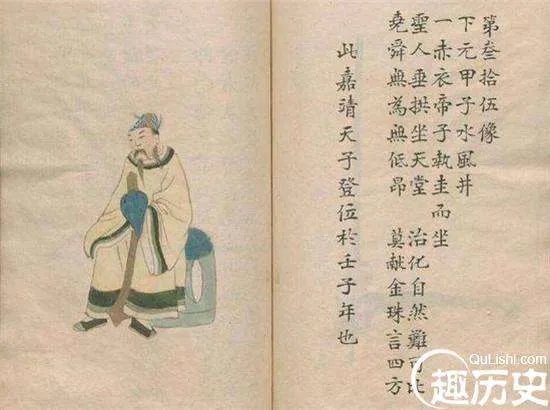 第叁拾伍像
下元甲子水風井
一赤衣帝子執圭而坐
聖人垂拱坐天堂 治化自然難可比
堯舜無為無低昂 莫献金珠言四方
此嘉靖天子登位於壬子年也
QuLishi.com
趣历史